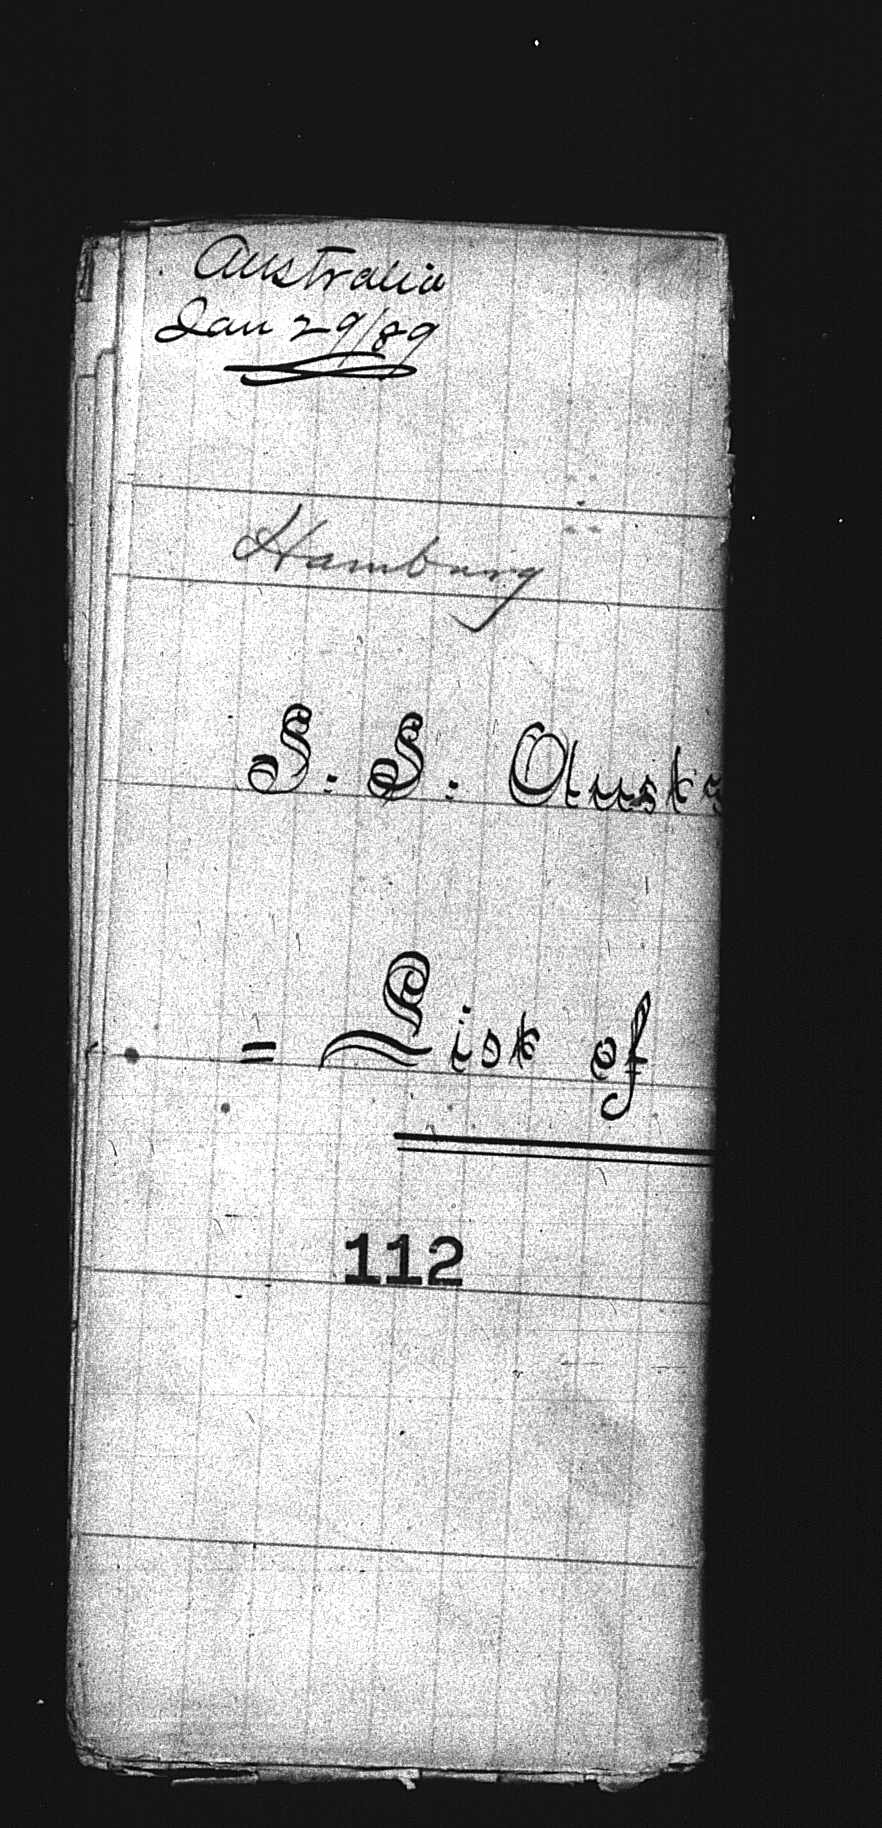 Australia
Jan 29/89
Hamburg
S. S. Austr
= List of
112